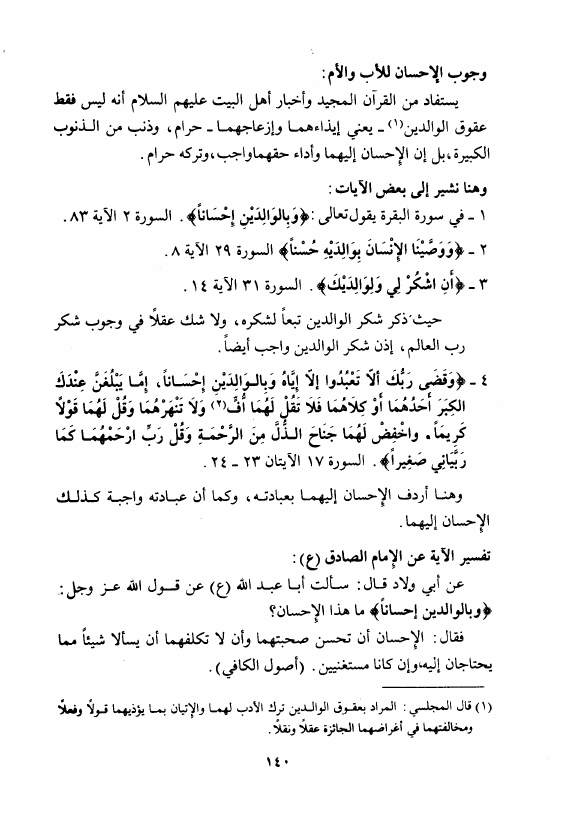 وجوب الإحسان للأب والأم:
يستفاد من القرآن المجيد وأخبار أهل البيت عليهم السلام أنه ليس فقط
عقوق الوالدين(١) ـ يعني إيذاءهما وإزعاجهما ـ حرام، وذنب من الذنوب
الكبيرة، بل إن الإحسان إليهما وأداء حقهما واجب، وتركه حرام.
وهنا نشير إلى بعض الآيات:
١ ـ في سورة البقرة يقول تعالى: ﴿وَبِالوَالِدَيْنِ إِحْسَاناً﴾. السورة ٢ الآية ٨٣.
٢ ـ ﴿وَوَصَّيْنَا الإِنْسَانَ بِوَالِدَيْهِ حُسْناً﴾ السورة ٢٩ الآية ٨.
٣ ـ ﴿أَنِ اشْكُرْ لِي وَلِوَالِدَيْكَ﴾. السورة ٣١ الآية ١٤.
حيث ذكر شكر الوالدين تبعاً لشكره، ولا شك عقلًا في وجوب شكر
رب العالم، إذن شكر الوالدين واجب أيضاً.
٤ ـ ﴿وَقَضَى رَبُّكَ ألاّ تَعْبُدُوا إلاّ إِيَّاهُ وَبِالوَالِدَيْنِ إِحْسَاناً، إِمَّا يَبْلُغَنَّ عِنْدَكَ
الكِبَرَ أَحَدُهُمَا أَوْ كِلَاهُمَا فَلَا تَقُلْ لَهُمَا أُفٍّ(٢) وَلَا تَنْهَرْهُمَا وَقُلْ لَهُمَا قَوْلًا
كَرِيمَاً. واخْفِضْ لَهُمَا جَنَاحَ الذُّلِّ مِنَ الرَّحْمَةِ وَقُلْ رَبِّ ارْحَمْهُمَا كَمَا
رَبَّيَانِي صَغِيراً﴾. السورة ١٧ الآيتان ٢٣ ـ ٢٤.
وهنا أردف الإحسان إليهما بعبادته، وكما أن عبادته واجبة كذلك
الإحسان إليهما.
تفسير الآية عن الإمام الصادق (ع):
عن أبي ولاد قال: سألت أبا عبد الله (ع) عن قول الله عز وجل:
﴿وبالوالدين إحساناً﴾ ما هذا الإحسان؟
فقال: الإحسان أن تحسن صحبتهما وأن لا تكلفهما أن يسألا شيئاً مما
يحتاجان إليه، وإن كانا مستغنيين. (أصول الكافي).
(١) قال المجلسي: المراد بعقوق الوالدين ترك الأدب لهما والإتيان بما يؤذيهما قولًا وفعلًا
ومخالفتهما في أغراضهما الجائزة عقلًا ونقلًا.
١٤٠